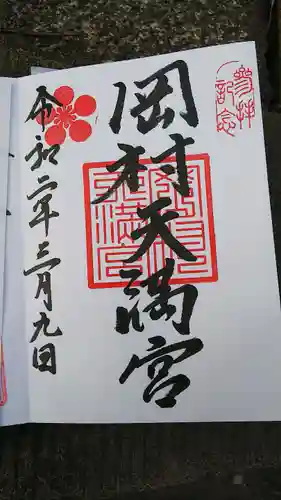 参拝
記念
岡村天満宮
令和二年三月九日